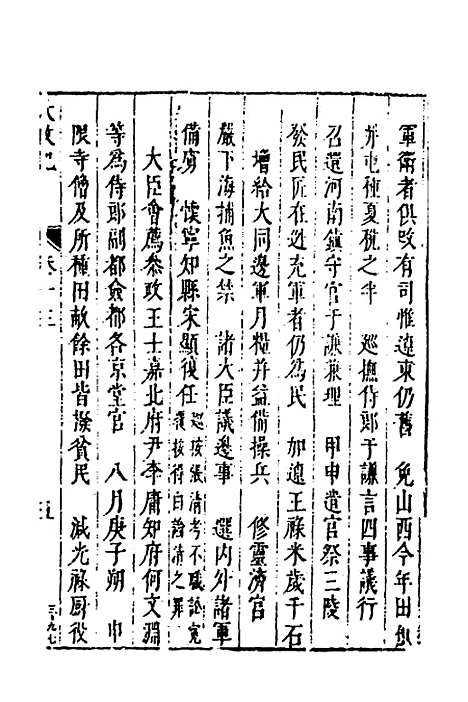 軍衛者俱改有司惟遼東仍舊　免山西今年田租
并屯種夏稅之半　巡撫侍郎于謙言四事議行
召還河南鎮守官于謙兼理　甲申遣官祭三陵
發民匠在逃充軍者仍爲民　加遼王祿米歲千石
增給大同邊軍月糧并益備操兵　修靈濟宮
嚴下海捕魚之禁　諸大臣議邊事　選內外諸軍
備虜　懷寧知縣宋顯復任巡按張清考不職訟寃
覆按得白論清之罪
大臣會薦叅政王士嘉北府尹李庸知府何文淵
等爲侍郎副都僉都各京堂官　八月庚子朔　申
限寺僧及所種田畝餘田皆撥貧民　減光祿厨役
大政記
卷十三
五